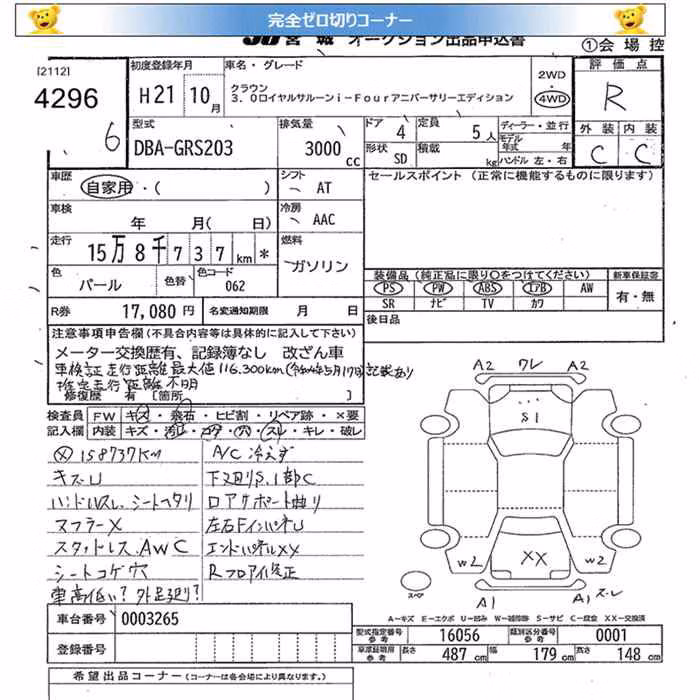 完全ゼロ切りコーナー
JU 宮城 オークション出品申込書
①会場控
[2112]
4296
6
初度登録年月
H21 10月
車名・グレード
クラウン
3.0ロイヤルサルーンi-Fourアニバーサリーエディション
2WD
・
4WD
評価点
R
型式
DBA-GRS203
排気量
3000cc
ドア 4
定員 5人
形状 SD
積載 kg
ディーラー・並行
モデル年式 年
ハンドル 左・右
外装 内装
C C
車歴
自家用・( )
シフト AT
セールスポイント (正常に機能するものに限ります)
車検
年 月( 日)
冷房 AAC
走行
15万8千737km *
燃料
ガソリン
色
パール
色替
色コード
062
装備品 (純正品に限り○をつけてください)
新車保証書
PS PW ABS エアB AW
SR ナビ TV カワ
有・無
R券 17,080円
名変通知期限 月 日
後日品
注意事項申告欄 (不具合内容等は具体的に記入して下さい)
メーター交換歴有、記録簿なし 改ざん車
車検証走行距離最大値116,300km(令和4年5月17日)記載あり
推定走行距離不明
修復歴 有 [箇所 ]
検査員 FW キズ・飛石・ヒビ割・リペア跡・×要
記入欄 内装 キズ・汚れ・コゲ・穴・スレ・キレ・破レ
Ⓧ 158737KM
キズU
ハンドルスレ、シートヘタリ
マフラーX
スタッドレス、AWC
シートコゲ穴
車高低い? 外足廻り?
A/C冷えず
下廻りS、1部C
ロアサポート曲り
左右FインパネU
エンドパネルXX
Rフロア修正
A2 ワレ A2
S1
XX
W2 W2
A1 A1 スレ
スペア
A-キズ E-エクボ U-凹み W-補修跡 S-サビ C-腐食 XX-交換済
車台番号 0003265
登録番号
型式指定番号 参考 16056
類別区分番号 参考 0001
車庫証明用 参考 長さ 487 cm 幅 179 cm 高さ 148 cm
希望出品コーナー (コーナーは各会場により異なります。)